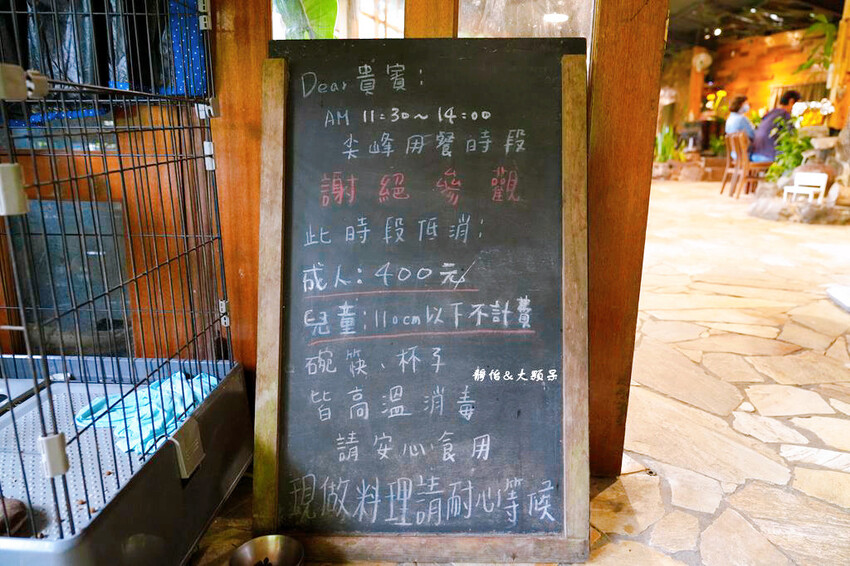 Dear 貴賓:
AM 11:30~14:00
尖峰用餐時段
謝絕參觀
此時段低消:
成人:400元/
兒童:110cm以下不計費
碗筷、杯子
皆高溫消毒
請安心食用
現做料理請耐心等候
靜怡&大顆呆